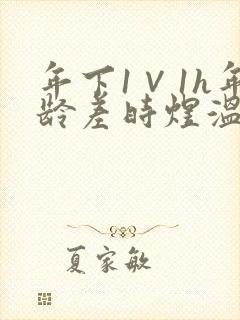 年下1V1h年
龄差时煜温
夏家敏